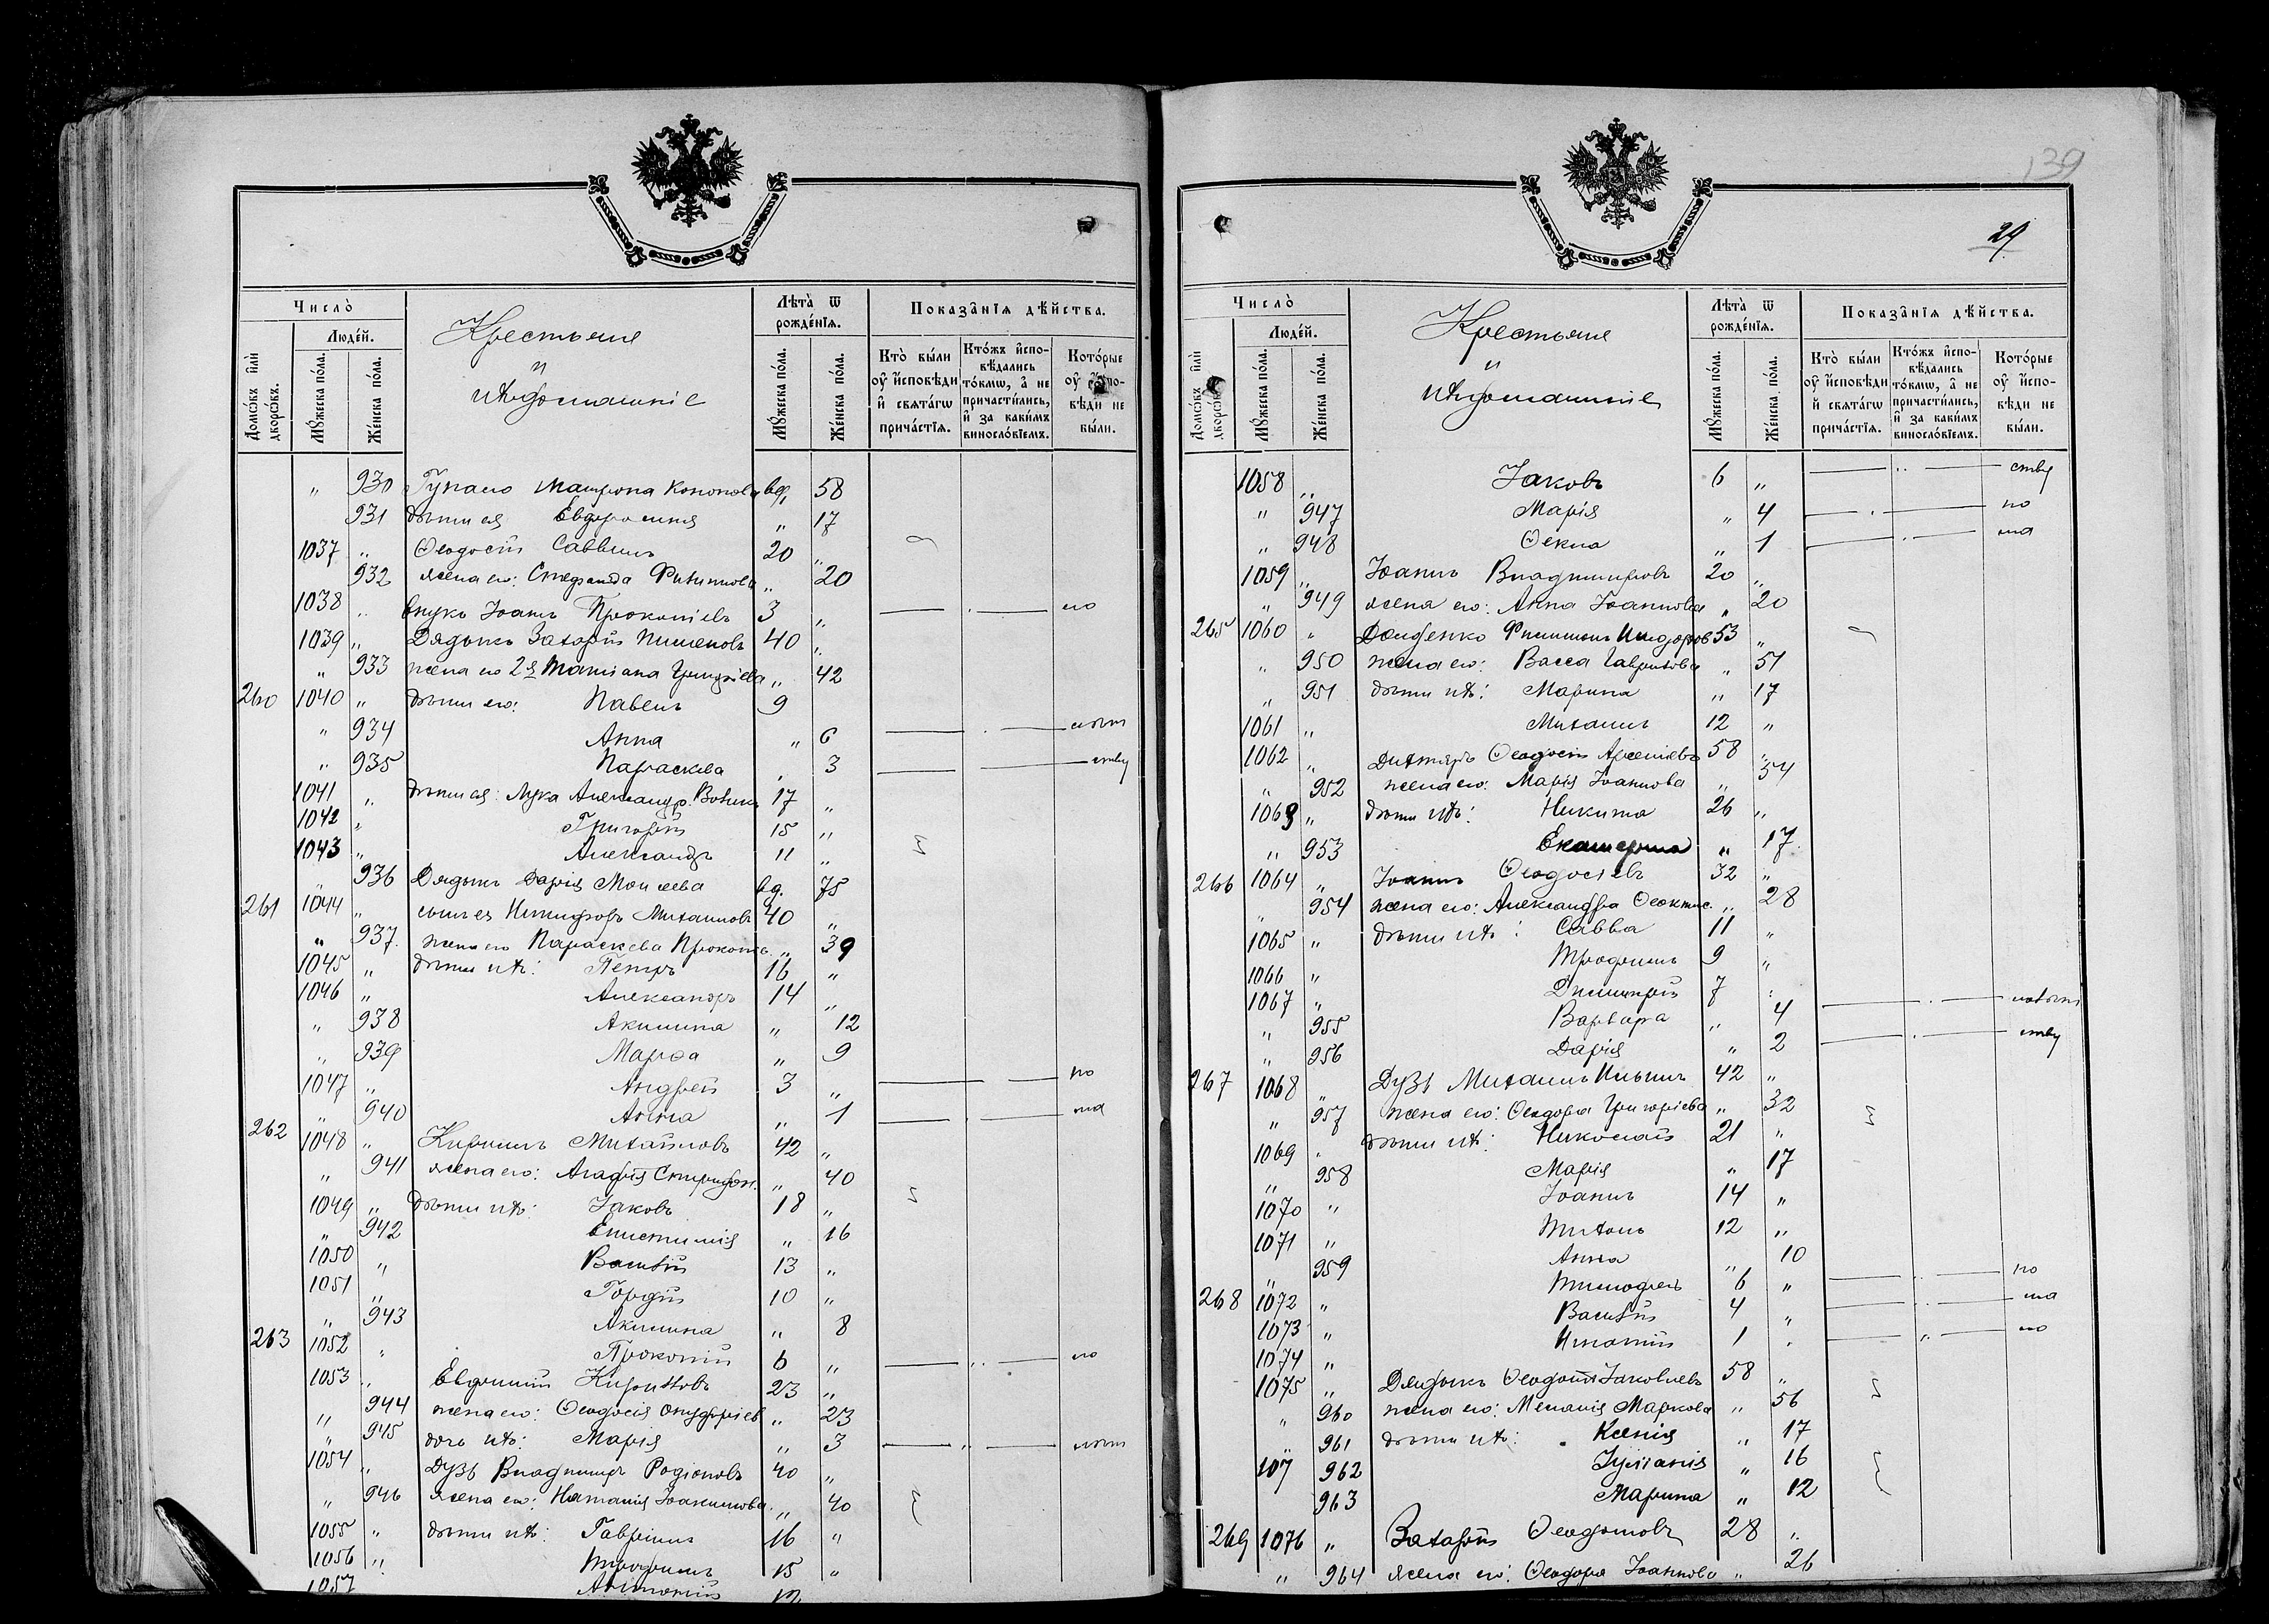 Число̀
Люде́й.
Домѡ́въ и҆лѝ дворѡ́въ.
Мꙋ́жеска по́ла.
Же́нска по́ла.
Крестьяне
и
ихъ домашніе
Лѣта̀ ѿ рожде́нїѧ.
Мꙋ́жеска по́ла.
Же́нска по́ла.
Показа̑нїѧ дѣ́йства.
Кто̀ бы́ли оу҆ и҆сповѣ́ди и҆ свѧта́гѡ прича́стїѧ.
Кто́жъ и҆сповѣ́дались то́кмѡ, а҆ не причасти́лись, и҆ за каки́мъ винослѡ́вїемъ.
Кото́рые оу҆ и҆сповѣ́ди не бы́ли.
" 930 Матрона Кононова вд. 58
931 дѣти ея Евфросинія " 17
1037 " Ѳеодосій Саввинъ 20 "
932 жена его: Стефанида Филиппова " 20
1038 " внукъ Іоаннъ Прокопіевъ 3 " по
1039 " Дядыкъ Захарій Пименовъ 40 "
" 933 жена его 2я Татіана " 42
260 1040 " дѣти его: Павелъ 9
" 934 Анна " 6
" 935 Параскева " 3
1041 " дѣти ея: Лука Александр. 17 "
1042 " Григорій 15 "
1043 " Александръ 11 "
936 Дядыкъ Дарія Моисеева вд. 75
261 1044 " сынъ ея Никифоръ Михаиловъ 40 "
" 937. жена его Параскева Прокопіе. " 39
1045 " дѣти ихъ: Петръ 16 "
1046 " Александръ 14 "
" 938 Акилина " 12
" 939 Марѳа " 9
1047 " Андрей 3 " по
" 940 Анна " 1 ма
262 1048 " Кириллъ Михайловъ 42 "
" 941 жена его: Агафія Спиридон. " 40
1049 " дѣти ихъ: Іаковъ 18 "
" 942 Епистимія " 16
1050 " Василій 13 "
1051 " Гордій 10 "
" 943 Акилина " 8
263 1052 " Прокопій 6 "
1053 " Евфимій Кирилловъ 23 "
" 944 жена его: Ѳеодосія Онуфріев. " 23
" 945 дочь ихъ: Марія " 3
1054 " Дузь Владиміръ Родіоновъ 40 "
" 946 жена его: Наталія Іоакимова. " 40
1055 " дѣти ихъ: Гавріилъ 16 "
1056 " Трофимъ 15 "
1057 Антоній 12
139
29
Число̀
Люде́й.
Домѡ́въ и҆лѝ дворѡ́въ.
Мꙋ́жеска по́ла.
Же́нска по́ла.
Крестьяне
и
ихъ домашніе
Лѣта̀ ѿ рожде́нїѧ.
Мꙋ́жеска по́ла.
Же́нска по́ла.
Показа̑нїѧ дѣ́йства.
Кто̀ бы́ли оу҆ и҆сповѣ́ди и҆ свѧта́гѡ прича́стїѧ.
Кто́жъ и҆сповѣ́дались то́кмѡ, а҆ не причасти́лись, и҆ за каки́мъ винослѡ́вїемъ.
Кото́рые оу҆ и҆сповѣ́ди не бы́ли.
1058 " Іаковъ 6 "
" 947 Марія " 4 по
" 948 Ѳекла " 1 ма
1059 " Іоаннъ Владиміровъ 20 "
" 949 жена его: Анна Іоаннова " 20
265 1060 " Филимонъ Исидоровъ 53 "
" 950 жена его: Васса Гаврилова " 51
" 951 дѣти ихъ: Марина " 17
1061 " Михаилъ 12 "
1062 " Дихтяръ Ѳеодосій Арсеніевъ 58 "
" 952 жена его: Марія Іоаннова " 54
1063 " дѣти ихъ: Никита 26 "
" 953 Екатерина " 17
266 1064 " Іоаннъ Ѳеодосіевъ 32 "
" 954 жена его: Александра Ѳеоктис. " 28
1065 " дѣти ихъ: Савва 11 "
1066 " Трофимъ 9 "
1067 " Димитрій 7 "
" 955 Варвара " 4
" 956 Дарія " 2
267 1068 " Дузь Михаилъ Ильинъ 42 "
" 957 жена его: Ѳеодора Григоріева " 32
1069 " дѣти ихъ: Николай 21 "
" 958 Марія " 17
1070 " Іоаннъ 14 "
1071 " Тихонъ 12 "
" 959 Анна " 10
268 1072 " Тимофей 6 " по
1073 " Василій 4 " ма
1074 " Игнатій 1 "
1075 " Дядыкъ Ѳеодотъ Іаковлевъ 58 "
" 960 жена его: Меланія Маркова " 56
" 961 дѣти ихъ: Ксенія " 17
107 962 Іуліанія " 16
963 Марина " 12
269 1076 " Захарій Ѳеодотовъ 28 "
" 964 жена его: Ѳеодора Іоаннова " 26